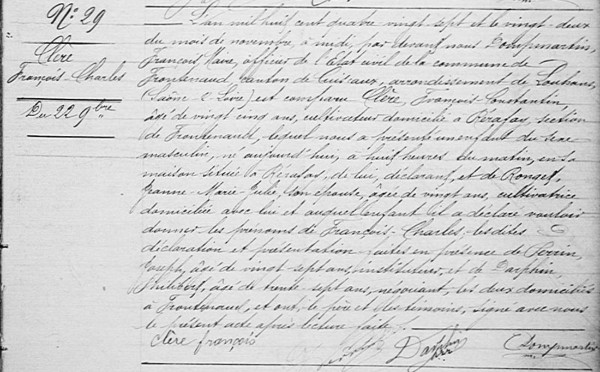 N° 29
Clère
François-Charles
Du 22 9bre
L'an mil huit cent quatre vingt sept et le vingt-deux
du mois de novembre, à midi, par devant nous Dompmartin,
François, Maire, officier de l'état civil de la commune de
Frontenaud, canton de Cuiseaux, arrondissement de Louhans,
(Saône & Loire) est comparu Clère, François-Constantin,
âgé de vingt cinq ans, cultivateur domicilié à section
de Frontenaud, lequel nous a présenté un enfant du sexe
masculin, né aujourd'hui, à huit heures du matin, en sa
maison située à de lui, déclarant, et de Ronget,
Jeanne-Marie-Julie, son épouse, âgée de vingt ans, cultivatrice
domiciliée avec lui et auquel enfant il a déclaré vouloir
donner les prénoms de François-Charles. lesdites
déclaration et présentation faites en présence de Perrin,
Joseph, âgé de vingt-sept ans, instituteur, et de Darphin,
Philibert, âgé de trente-sept ans, négociant, les deux domiciliés
à Frontenaud, et ont, le père et les témoins, signé avec nous
le présent acte après lecture faite.
Clère françois
Dompmartin